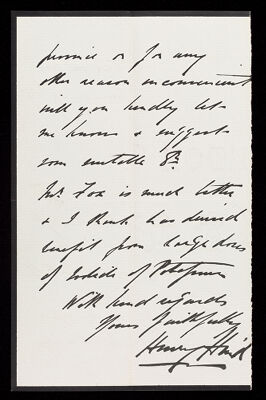 province or for any
other reason inconvenient
will you kindly let
me know & suggest
some suitable
Mr. Fox is much better
& I think has derived
benefit from large doses
of Iodide of Potassium
With kind regards
Yours faithfully
Henry